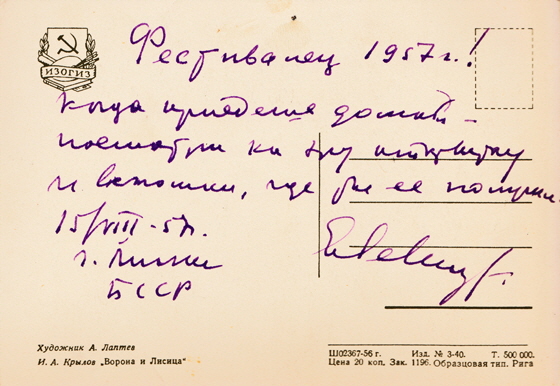 ИЗОГИЗ
Фестивалец 1957г.!
Когда приедешь домой –
посмотри на эту открытку
и вспомни, где ты ее получил.
15/VIII-57г.
г. Минск
БССР
Художник А. Лаптев
И. А. Крылов „Ворона и Лисица“
Ш02367-56 г. Изд. № 3-40. Т. 500 000.
Цена 20 коп. Зак. 1196. Образцовая тип. Рига